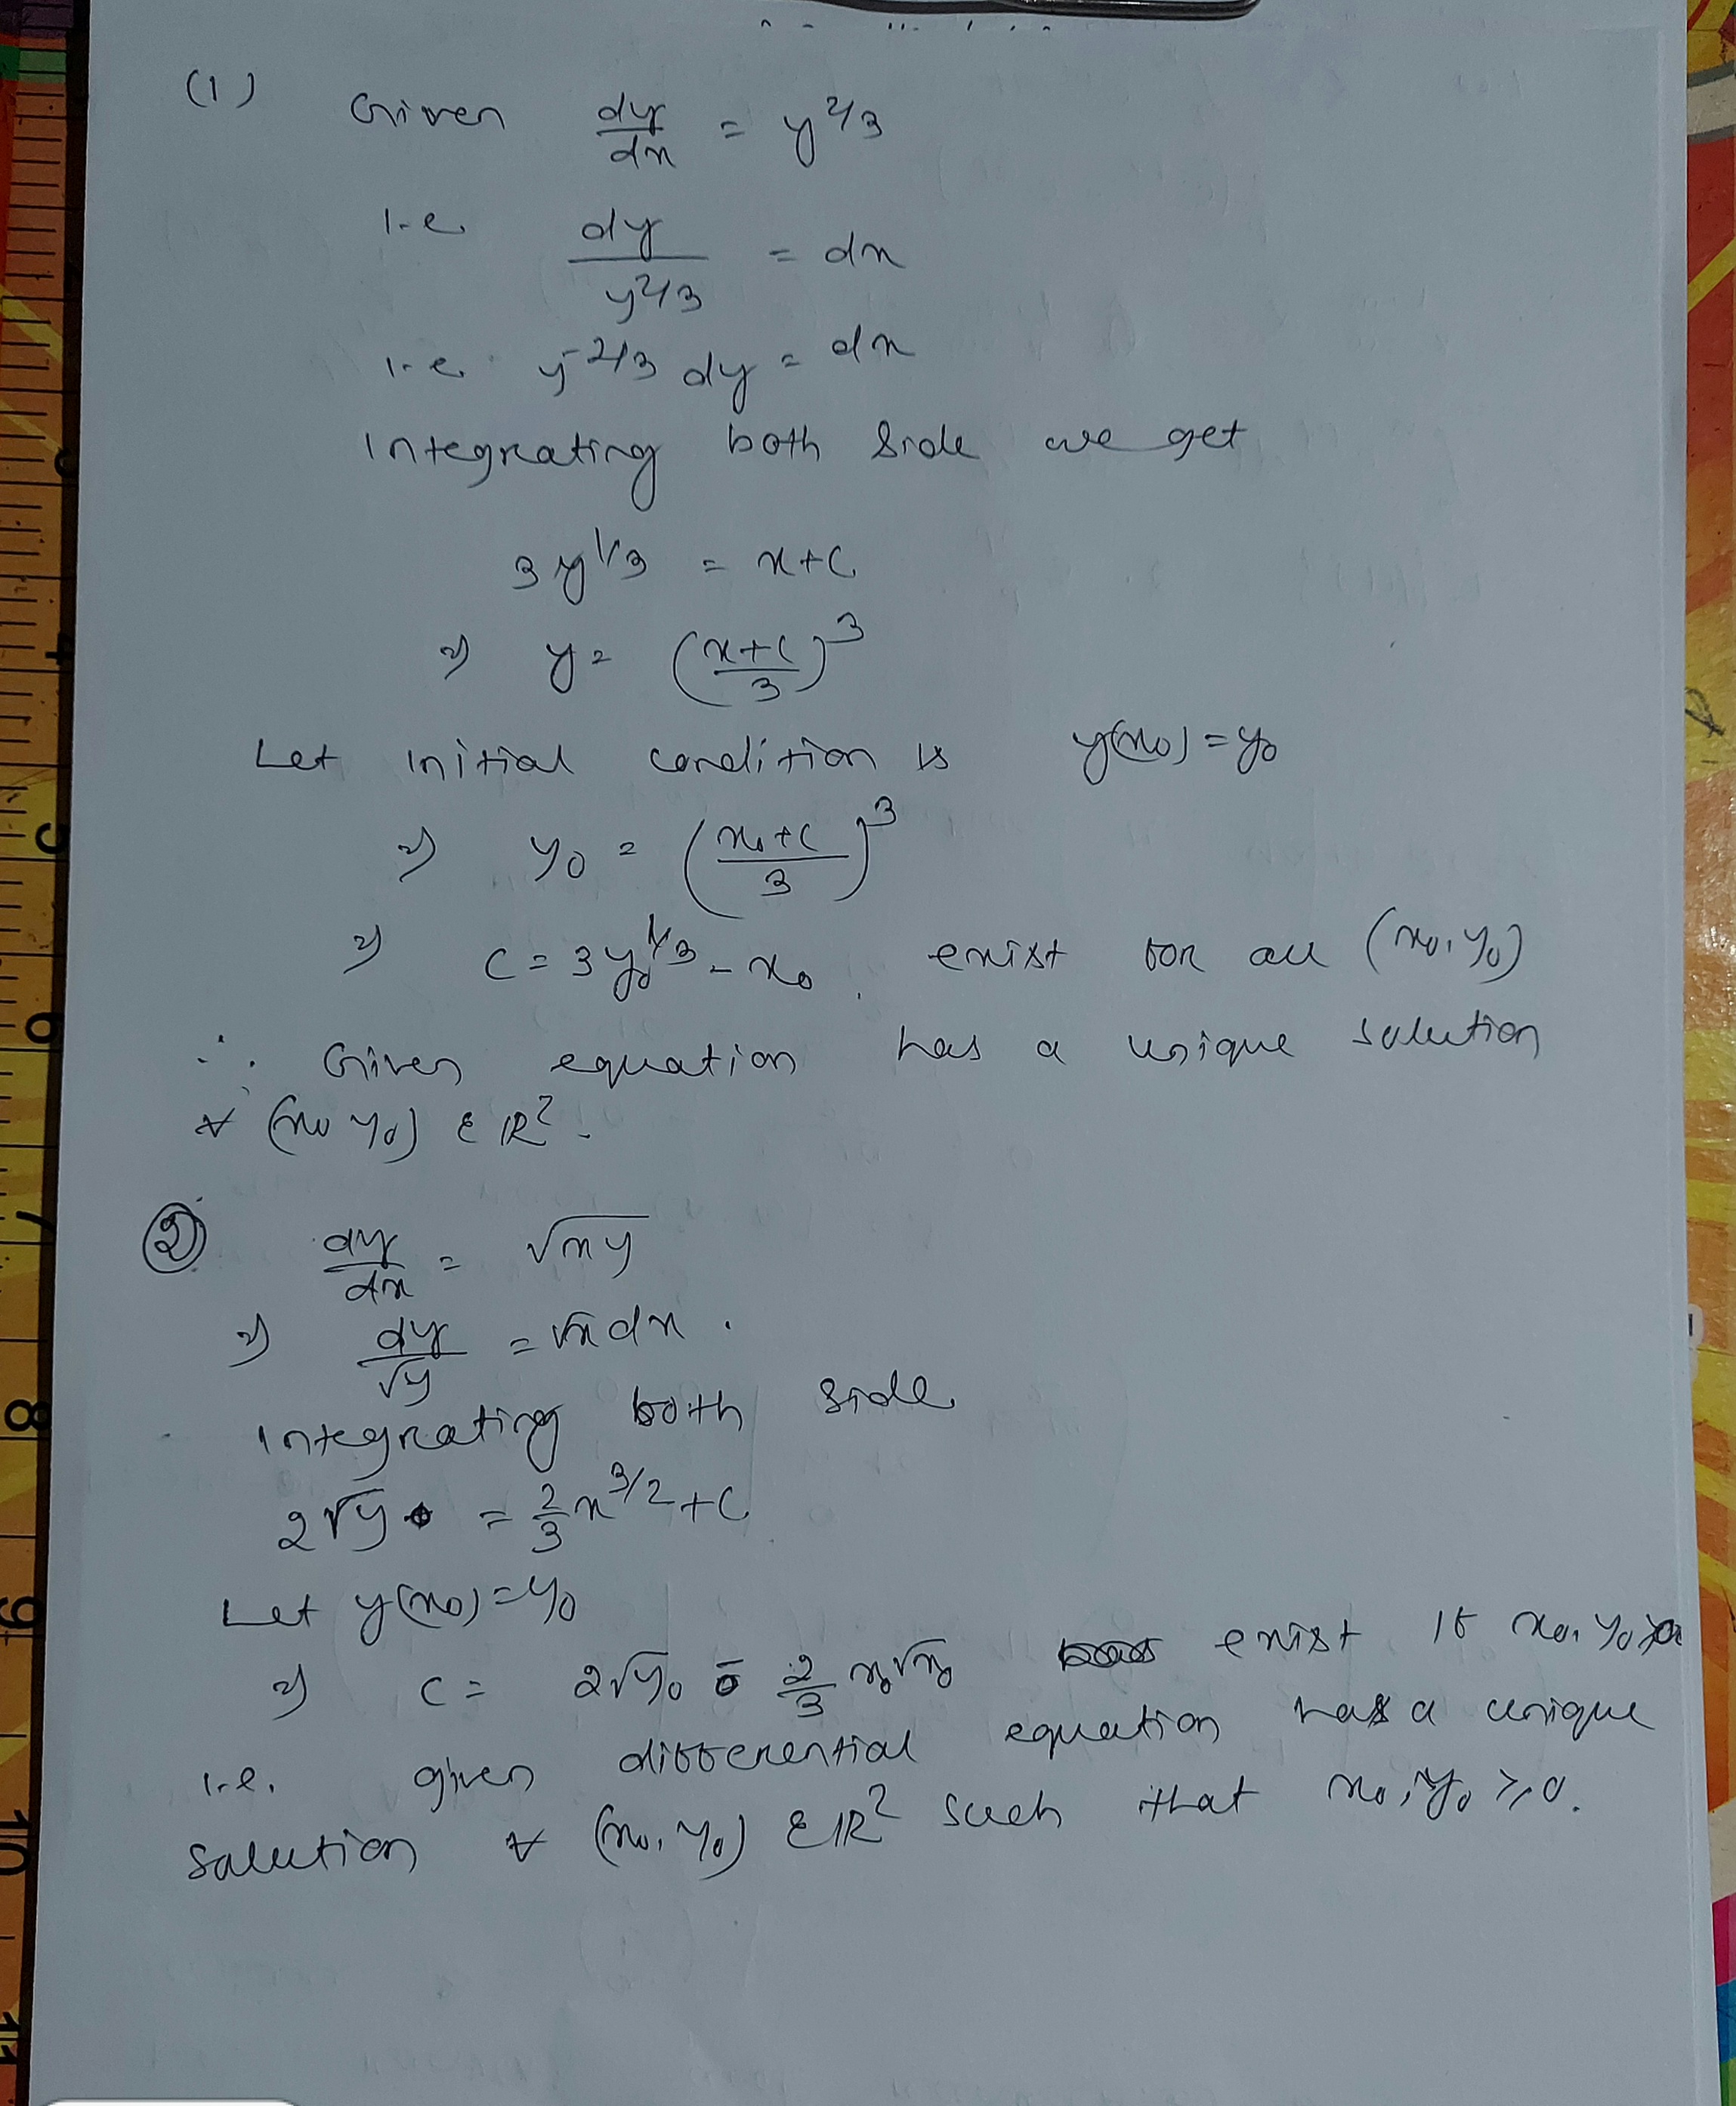 (1) Given dy/dx = y^2/3
i.e. dy/y^2/3 = dx
i.e. y^-2/3 dy = dx
Integrating both side we get
3y^1/3 = x+c
⇒ y = (x+c/3)^3
Let initial condition is y(x0) = y0
⇒ y0 = (x0+c/3)^3
⇒ c = 3y0^1/3 - x0, exist for all (x0, y0)
∴ Given equation has a unique solution
∀ (x0 y0) ∈ IR^2.
(2) dy/dx = √xy
⇒ dy/√y = √x dx.
Integrating both side
2√y = 2/3 x^3/2 + c
Let y(x0) = y0
⇒ c = 2√y0 - 2/3 x0√x0 exist if x0, y0 ≥0
i.e. given differential equation has a unique
solution ∀ (x0, y0) ∈ IR^2 such that x0, y0 ≥ 0.
3
4
5
6
7
8
9
10
11